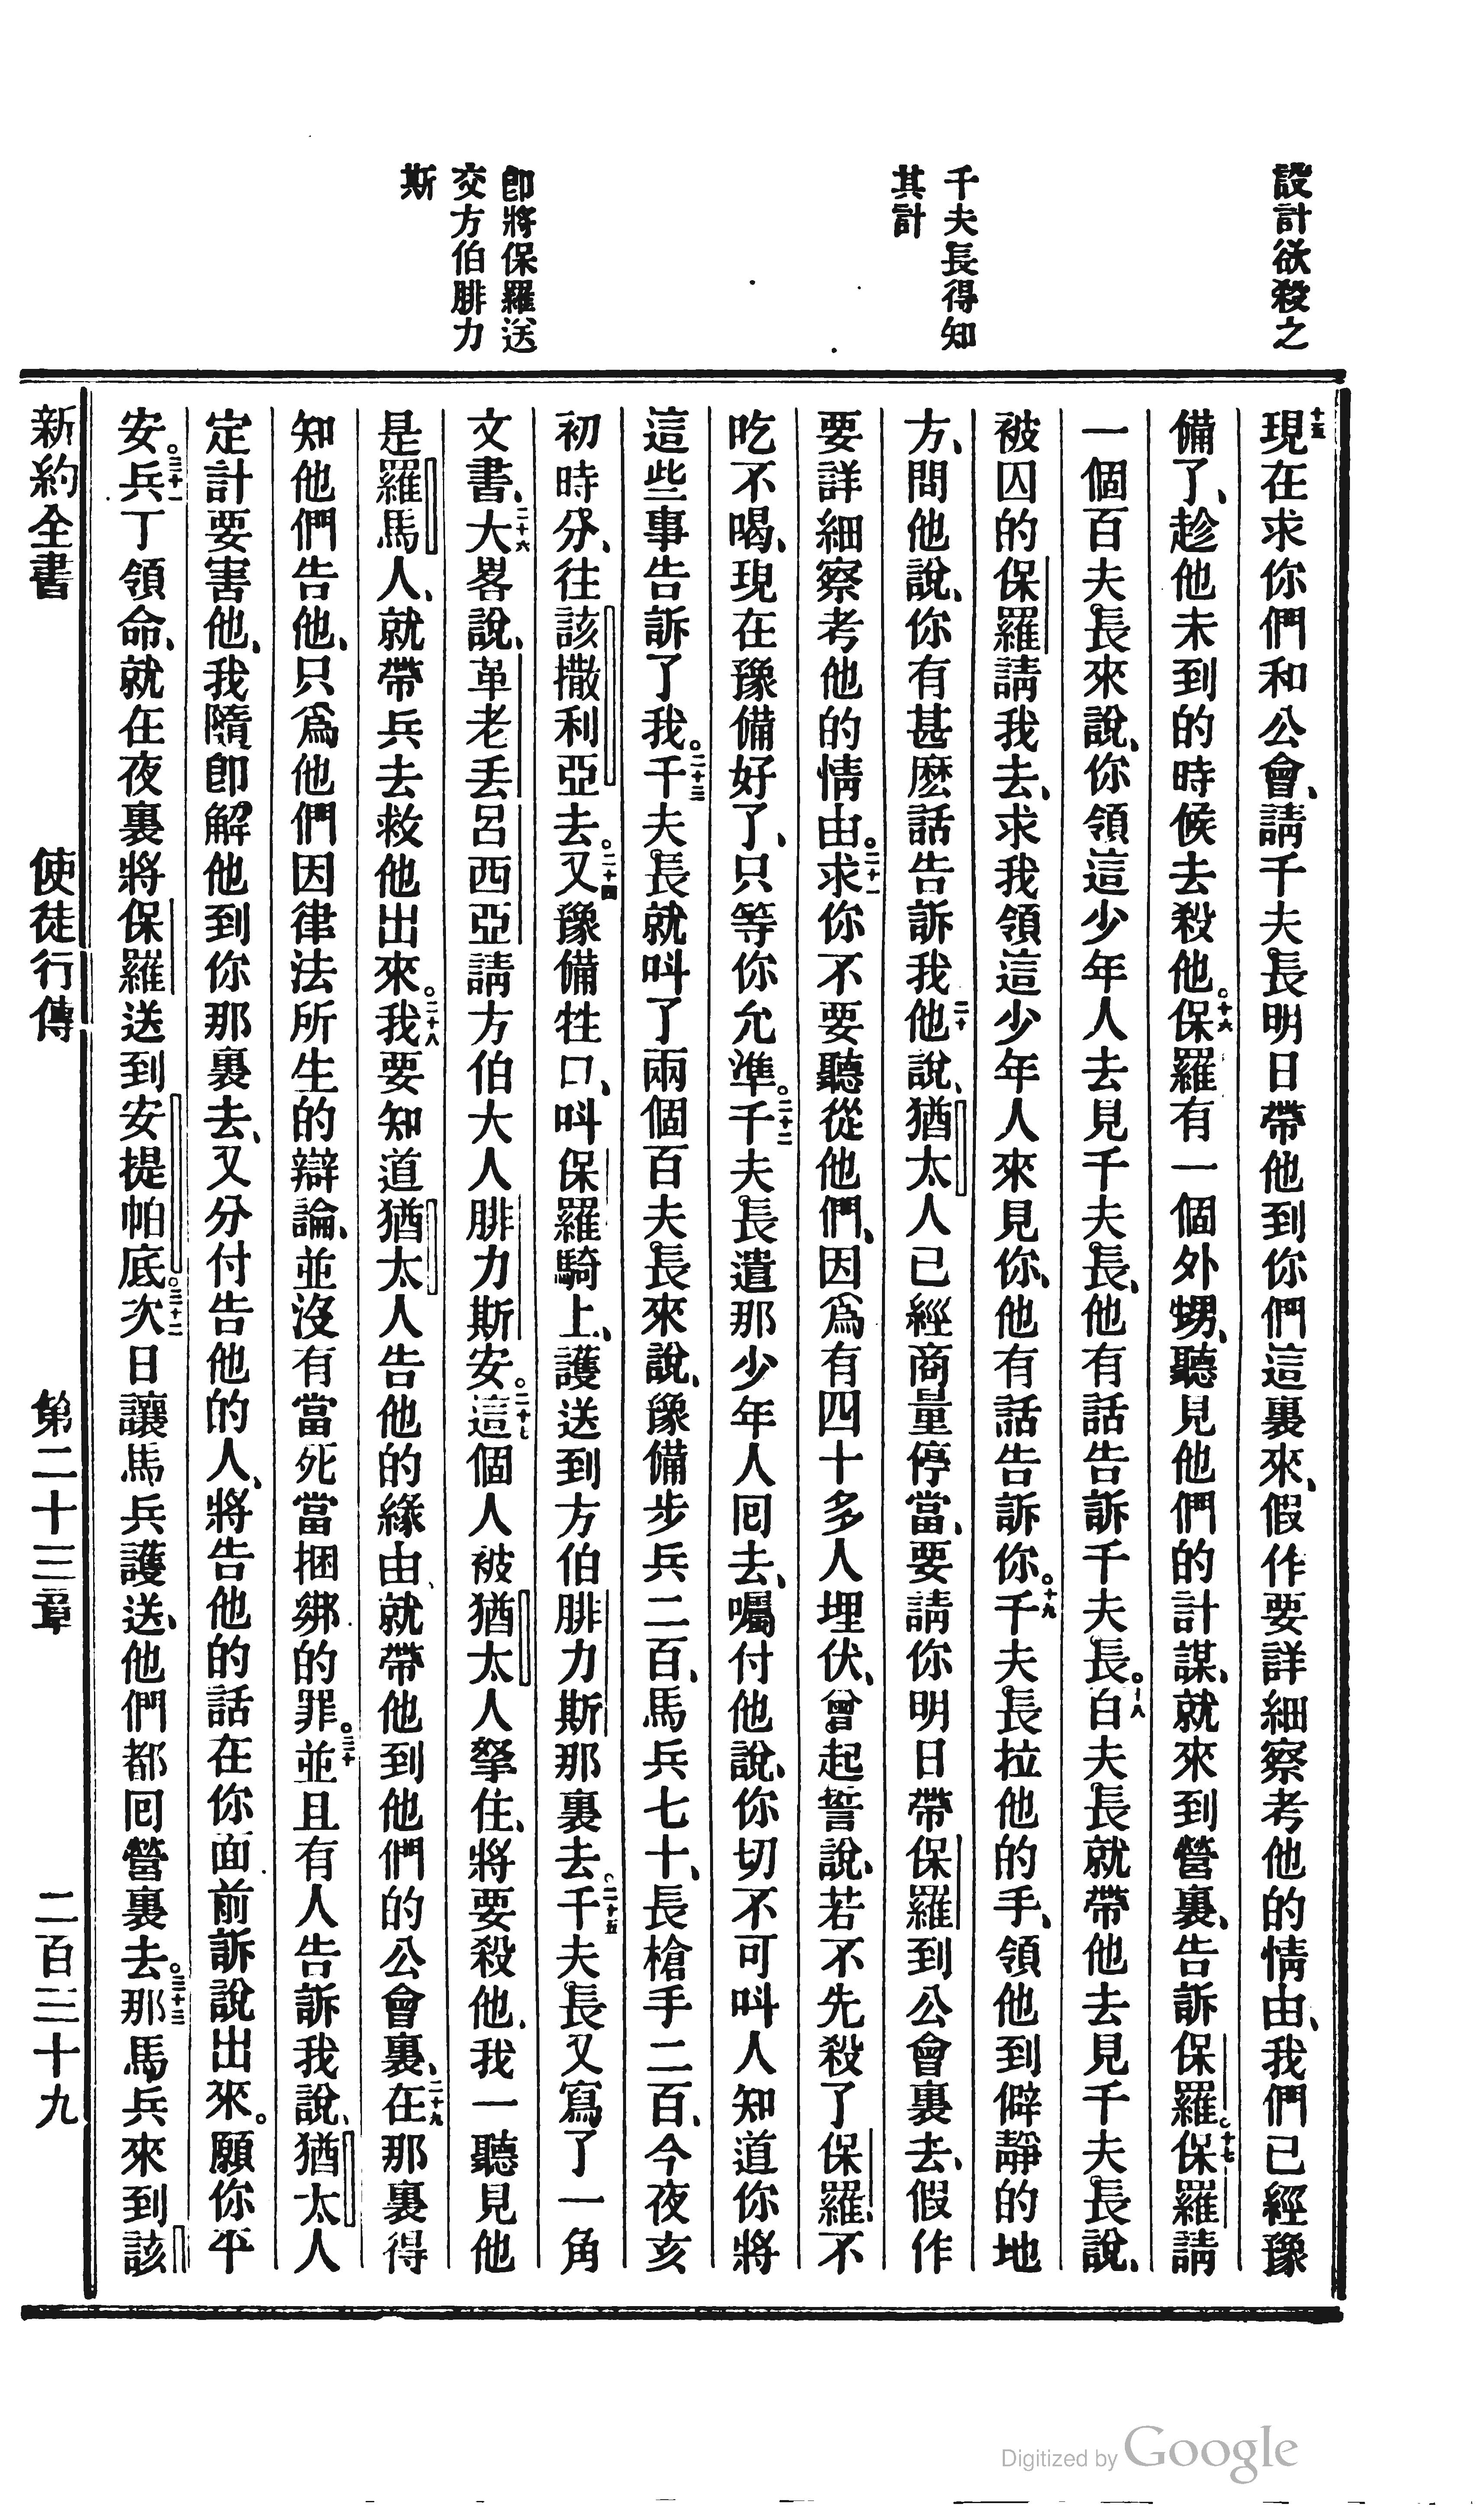 設計欲殺之
千夫長得知
其計
卽將保羅送
交方伯腓力
斯
十五現在求你們和公會、請千夫長明日帶他到你們這裏來、假作要詳細察考他的情由、我們已經豫
備了、趁他未到的時候去殺他。十六保羅有一個外甥、聽見他們的計謀、就來到營裏、告訴保羅。十七保羅請
一個百夫長來說、你領這少年人去見千夫長、他有話告訴千夫長。十八白夫長就帶他去見千夫長說、
被囚的保羅請我去、求我領這少年人來見你、他有話告訴你。十九千夫長拉他的手、領他到僻靜的地
方、問他說、你有甚麽話告訴我二十他說、猶太人已經商量停當、要請你明日帶保羅到公會裏去、假作
要詳細察考他的情由。二十一求你不要聽從他們、因爲有四十多人埋伏、曾起誓說、若不先殺了保羅、不
吃不喝、現在豫備好了、只等你允準。二十二千夫長遣那少年人囘去、囑付他說、你切不可呌人知道你將
這些事告訴了我。二十三千夫長就呌了兩個百夫長來說、豫備步兵二百、馬兵七十、長槍手二百、今夜亥
初時分、往該撒利亞去。二十四又豫備牲口、呌保羅騎上、護送到方伯腓力斯那裏去。二十五千夫長又寫了一角
文書、二十六大畧說、革老丢呂西亞請方伯大人腓力斯安。二十七這個人被猶太人拏住、將要殺他、我一聽見他
是羅馬人、就帶兵去救他出來。二十八我要知道猶太人告他的緣由、就帶他到他們的公會裏、二十九在那裏得
知他們告他、只爲他們因律法所生的辯論、並沒有當死當捆綁的罪。三十並且有人告訴我說、猶太人
定計要害他、我隨卽解他到你那裏去、又分付告他的人、將告他的話在你面前訴說出來。願你平
安。三十一兵丁領命、就在夜裏將保羅送到安提帕底。三十二次日讓馬兵護送、他們都囘營裏去。三十三那馬兵來到該
新約全書 使徒行傳 第二十三章 二百三十九
Digitized by Google